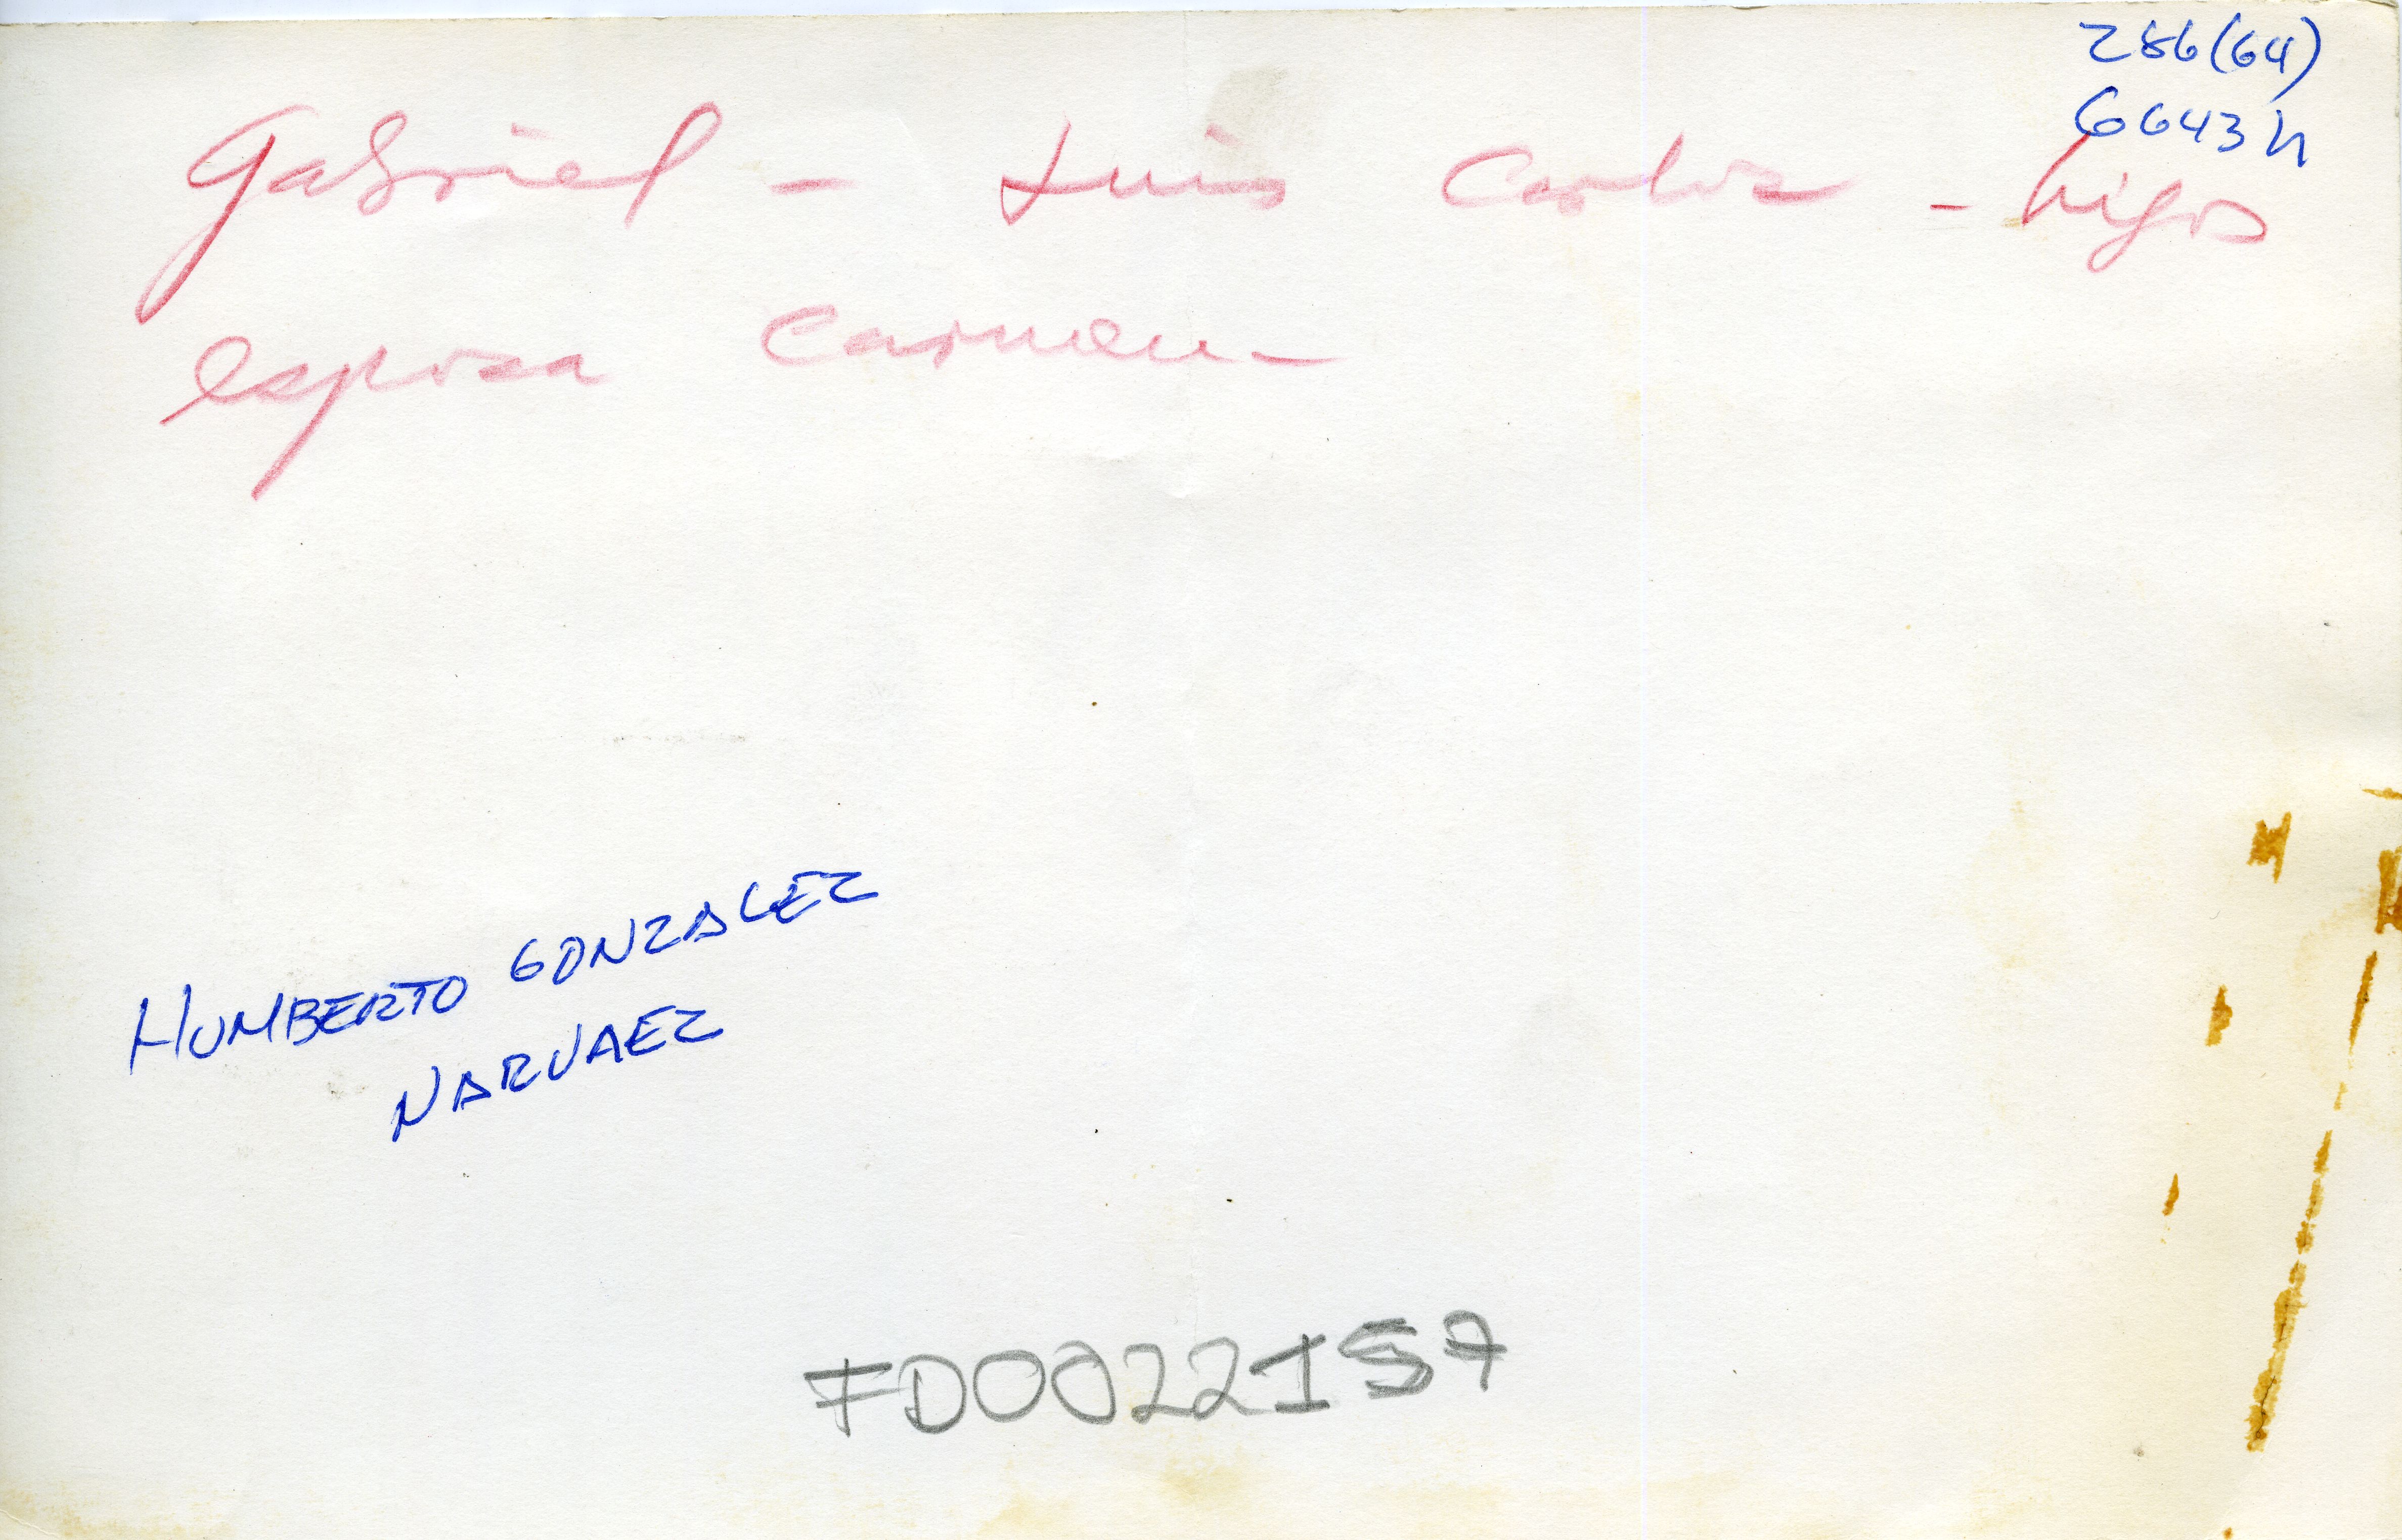 286(64)
G643h
Gabriel - Luis Carlos - hijos
esposa Carmen -
HUMBERTO GONZALEZ
NARVAEZ
FD0022157